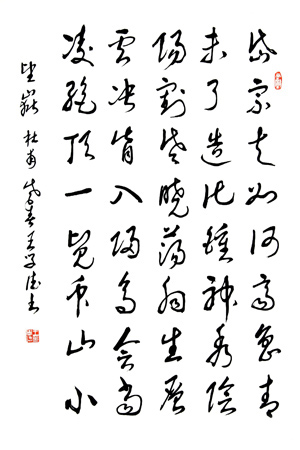 岱宗夫如何齊魯青
未了造化鍾神秀陰
陽割昏曉蕩胸生層
雲決眥入歸鳥會當
凌絕頂一覽眾山小
望嶽 杜甫